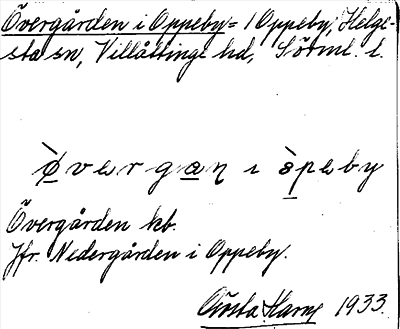 Övergården i Oppeby = 1 Oppeby, Helge-
sta sn, Villåttinge hd, Sörml. l.
ø̀vergaɳ i òpeby
Övergården kb.
Jfr. Nedergården i Oppeby.
Gösta Harne 1933.